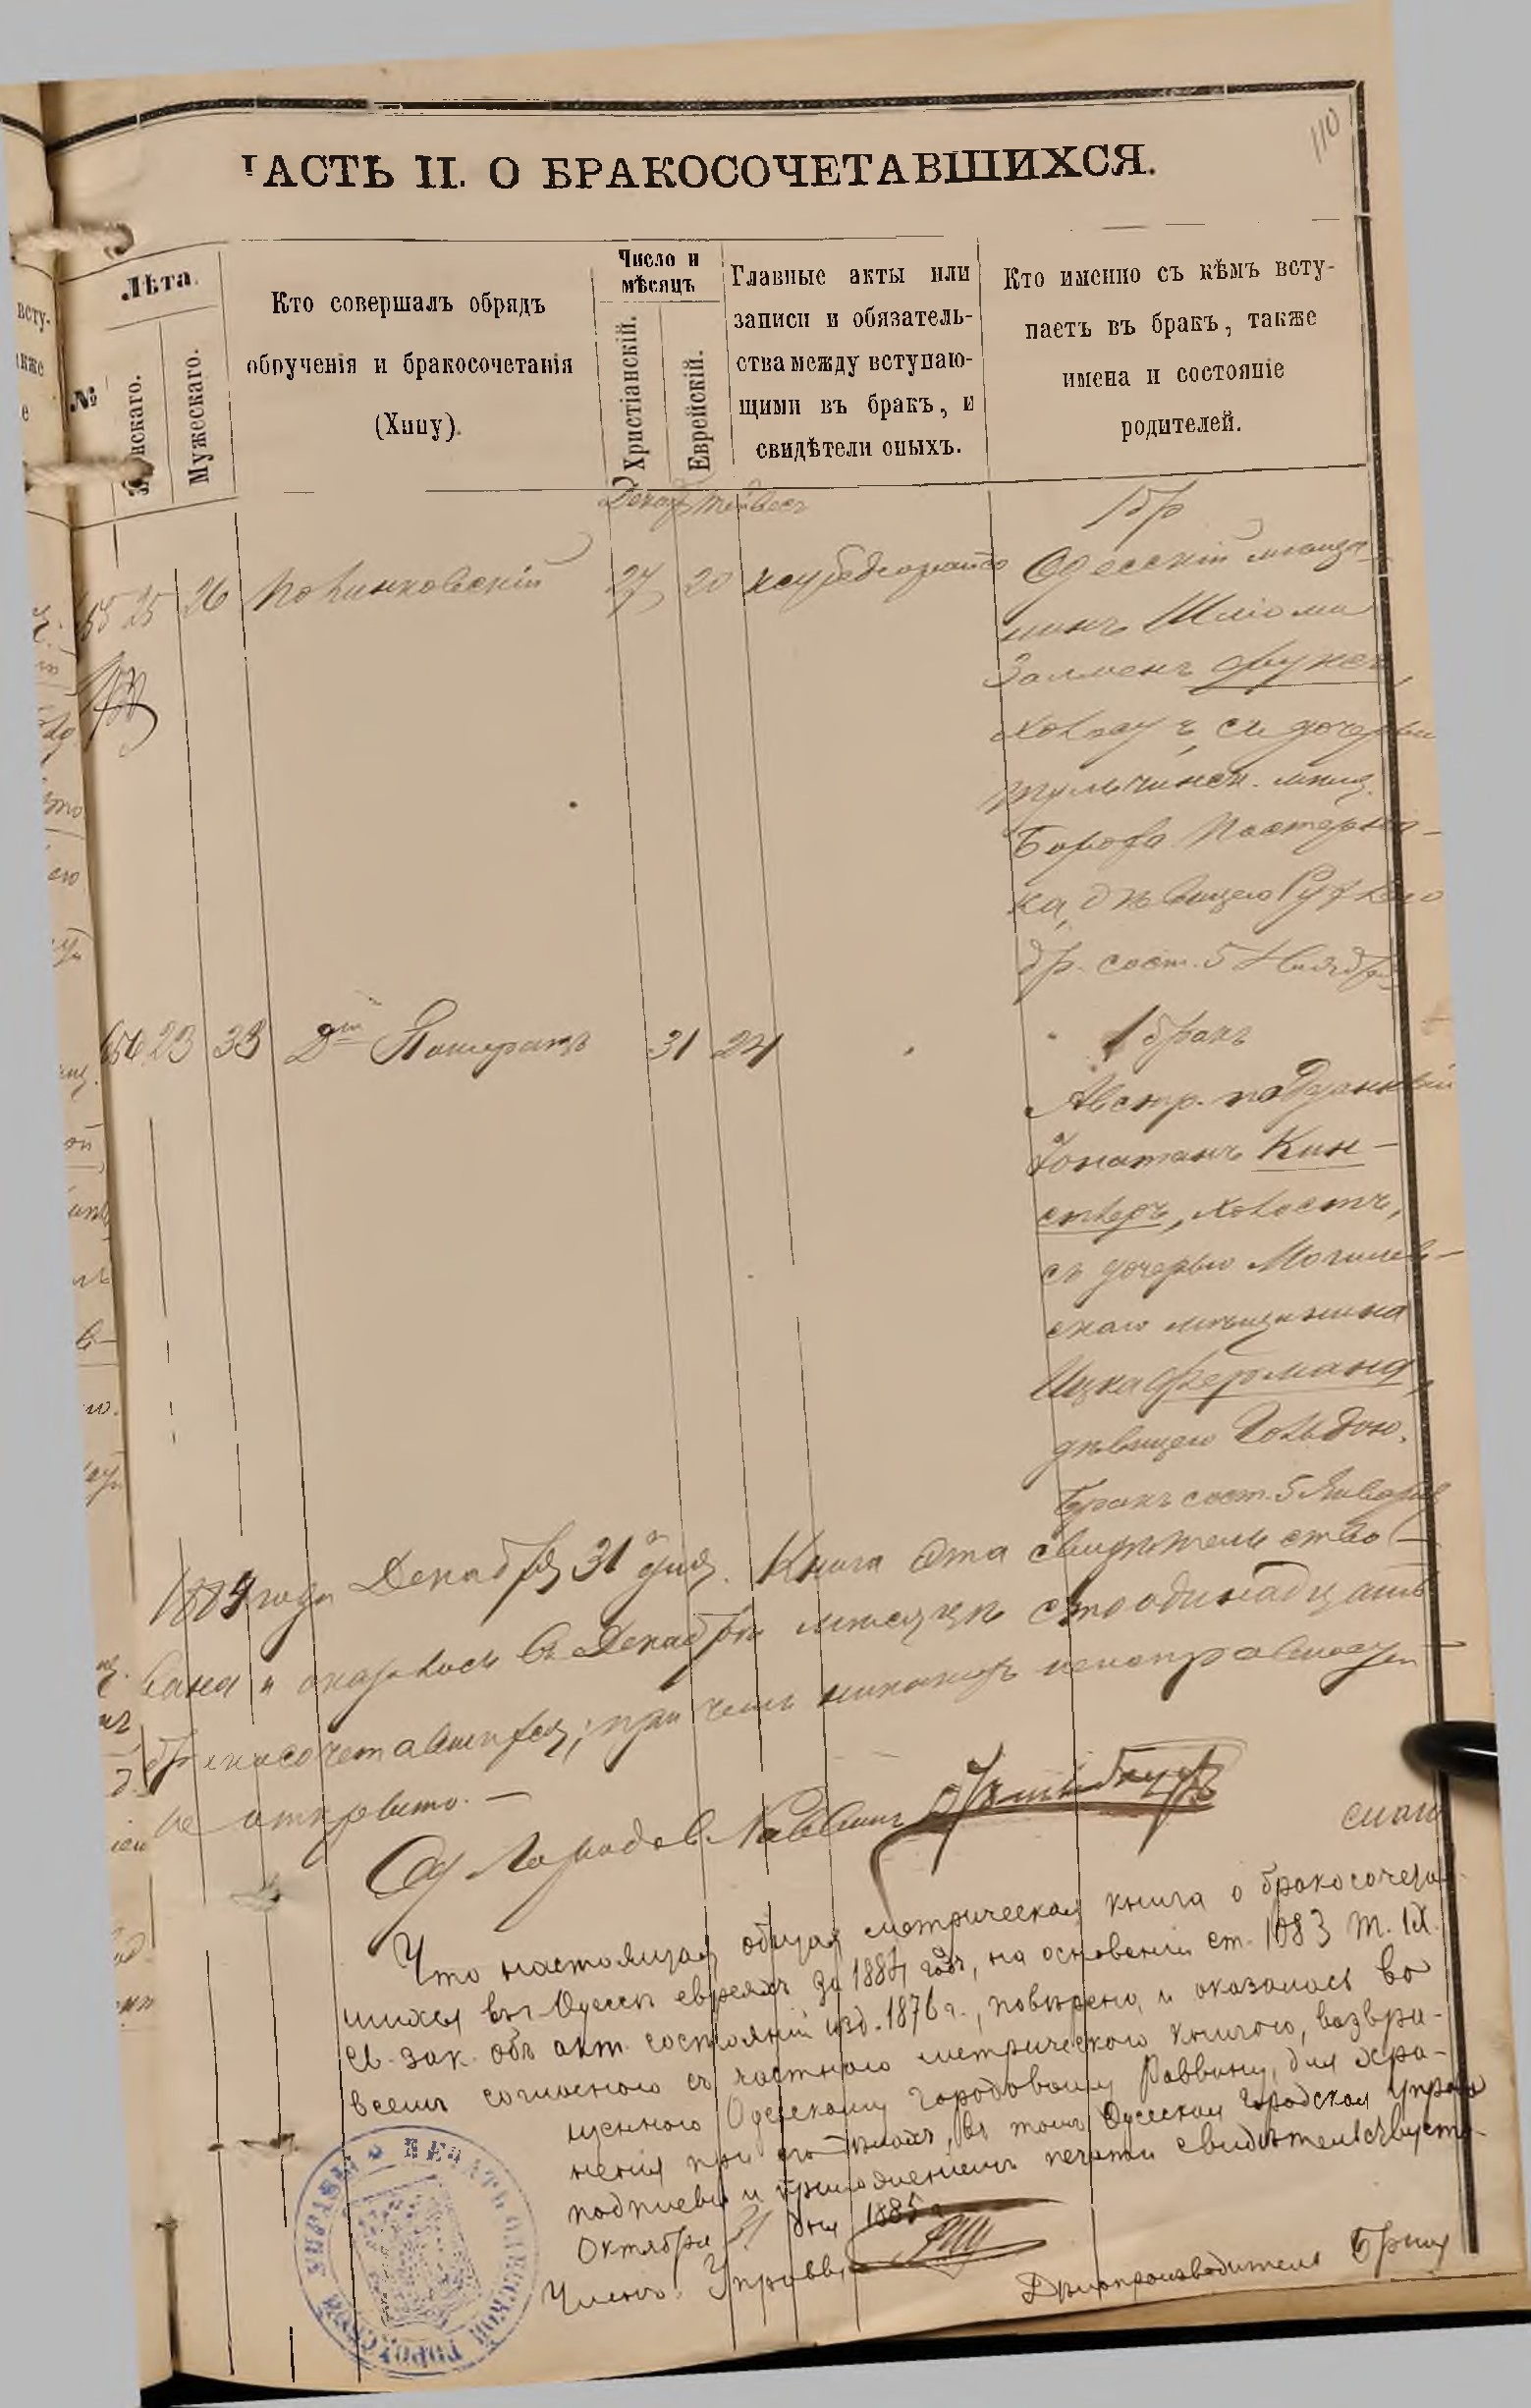 110
ЧАСТЬ II. О БРАКОСОЧЕТАВШИХСЯ.
№
Лѣта.
Женскаго.
Мужескаго.
Кто совершалъ обрядъ
обрученія и бракосочетанія
(Хипу).
Число и
мѣсяцъ
Христіанскій.
Еврейскій.
Главные акты или
записи и обязатель-
ства между вступаю-
щими въ бракъ, и
свидѣтели оныхъ.
Кто именно съ кѣмъ всту-
паетъ въ бракъ, также
имена и состояніе
родителей.
Декаб. Тейвесъ
1 бр
25 26 27 20 Одесскій мѣща-
нинъ Шліома
Залменъ Фуксъ,
холостъ, съ дочерью
тульчинск. мѣщ.
Пастерна-
ка, дѣвицею
бр. сост. 5 Ноября
656 23 33 Дт Помранцъ 31 24 1 бракъ
Австр. подданный
Іонатанъ Кин-
стлеръ, холостъ,
съ дочерью Могилев-
скаго мѣщанина
Ицка Фермана,
дѣвицею Гольдою.
Бракъ сост. 5 Января
1884 года Декабря 31 дня. Книга эта свидѣтельство-
вана и оказалось въ Декабрѣ мѣсяцѣ сто одинадцать
бракосочетавшихся, при чемъ никакой неисправности
не открыто. —
Од Городов. Раввинъ
Что настоящая общая метрическая книга о бракосочетав-
шихся въ г. Одессѣ евреяхъ за 1884 годъ, на основаніи ст. 1083 т. IX.
Св. зак. объ акт. состояній изд. 1876 г., повѣрена и оказалась во
всемъ согласною съ частною метрическою книгою, возвра-
щенною Одесскому городовому Раввину, для хра-
ненія при его дѣлахъ, въ томъ Одесская городская управа
подписью и приложеніемъ печати свидѣтельствуетъ.
Октября 31 дня 1885 г.
Членъ Управы
Дѣлопроизводитель
ПЕЧАТЬ ОДЕССКОЙ ГОРОДСКОЙ УПРАВЫ